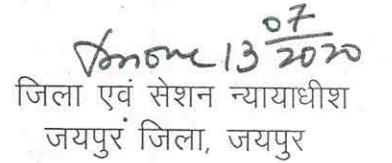 13 07/2020
जिला एवं सेशन न्यायाधीश
जयपुर जिला, जयपुर